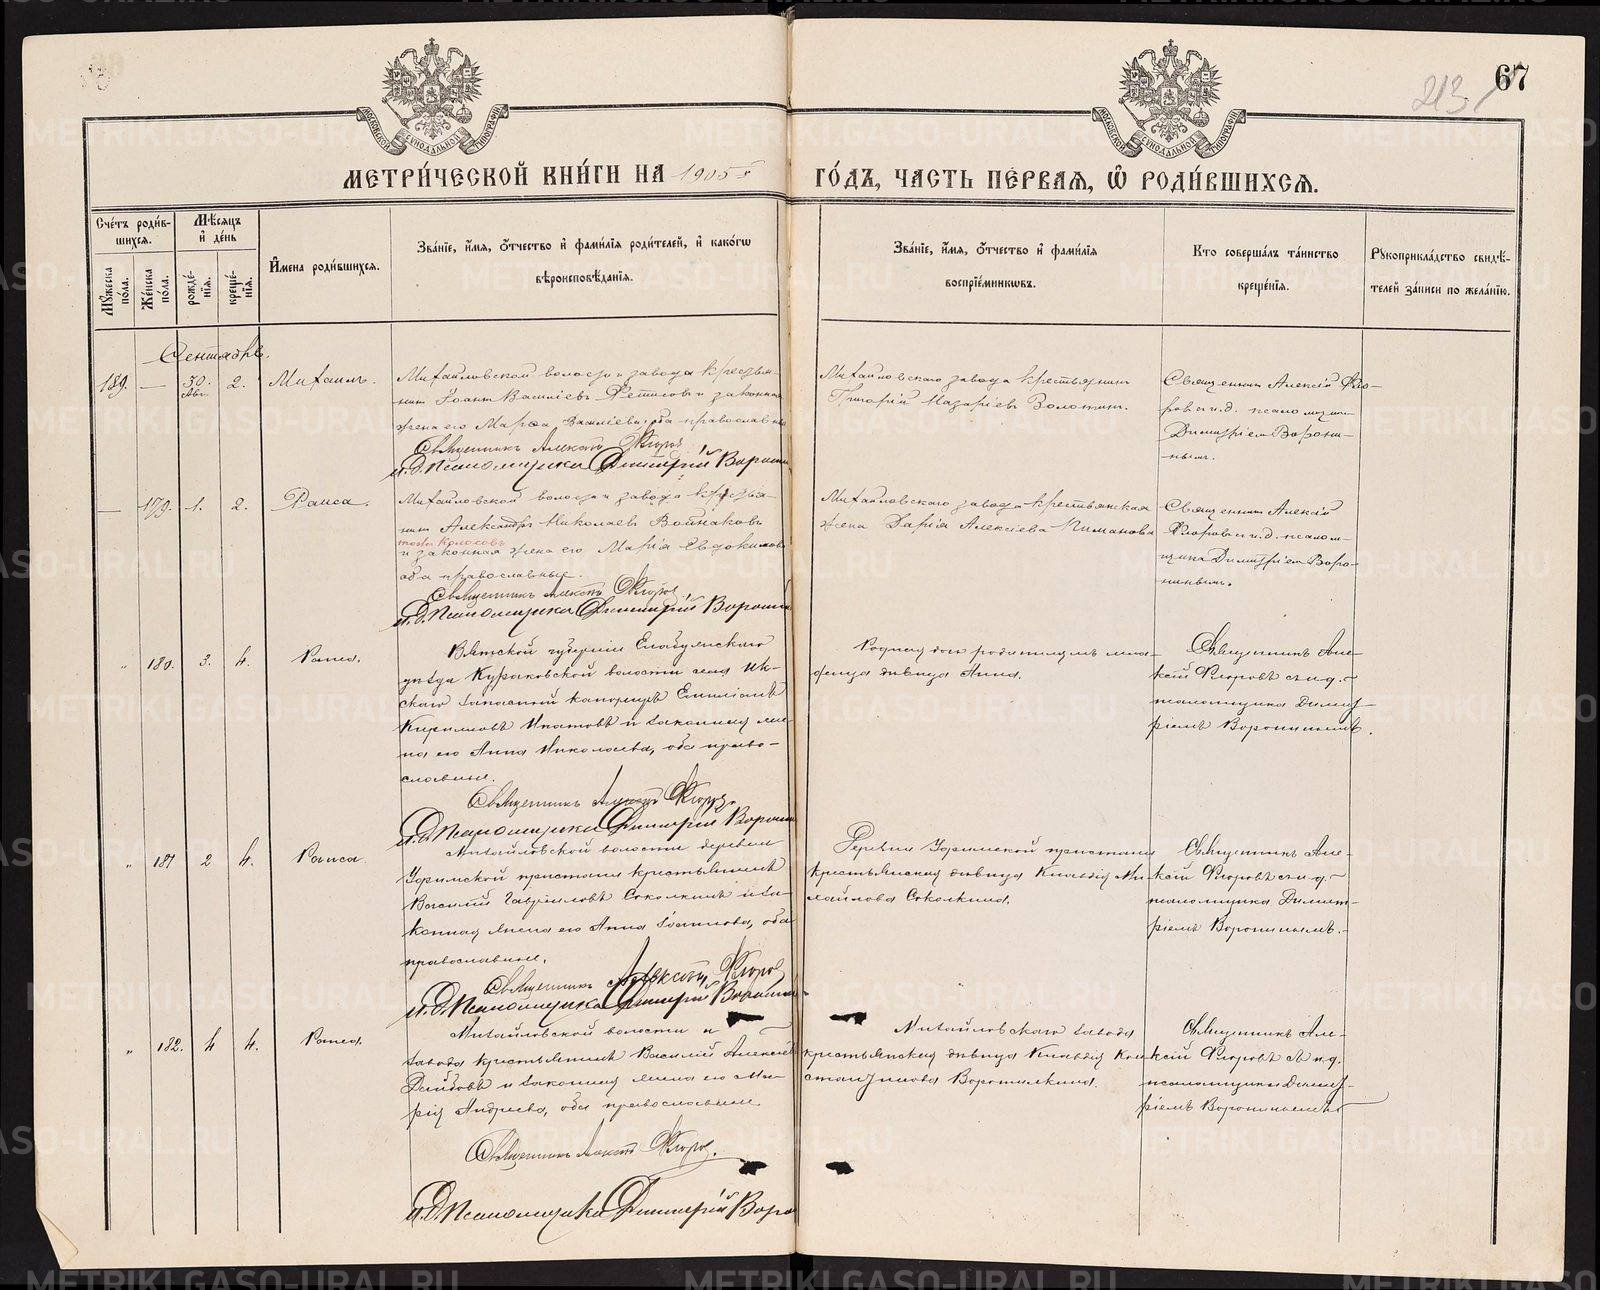 67
213
МЕТРИ́ЧЕСКОЙ КНИ́ГИ НА 1905й
ГО́ДЪ, ЧАСТЬ ПЕ́РВАЯ, Ѽ РОДИ́ВШИХСЯ.
Сче́тъ роди́в-
шихся.
Мѣ́сяцъ
и҆ де́нь
Мꙋ́жеска по́ла.
Же́нска по́ла.
рожде́-
нїя.
креще́-
нїя.
И҆мена роди́вшихся.
Зва́нїе, и҆́мя, ѻ҆́тчество и҆ фами́лїя роди́телей, и҆ како́гѡ
вѣроисповѣ́данїя.
Зва́нїе, и҆́мя, ѻ҆́тчество и҆ фами́лїя
воспрїе́мникѡвъ.
Кто соверша́лъ та́инство
креще́нїя.
Рꙋкоприкла́дство свидѣ́-
телей за́писи по жела́нїю.
Сентябрь.
189. — 30. Авг. 2. Михаилъ.
Михайловской волости и завода крестья-
нинъ Іоаннъ Василіевъ и законная
жена его Марѳа Василіева, оба православные
Священникъ Алексѣй Флоровъ
И. д. Псаломщика Димитрій Воронин
Михайловскаго завода крестьянинъ
Григорій Назаріевъ Золотин.
Священникъ Алексій Фло-
ровъ и и. д. псаломщи-
Димитріем Ворони-
нымъ.
— 179. 1. 2. Раиса.
Михайловской волости и завода крестья-
нинъ Александръ Николаевъ Войнаковъ
и законная жена его Марія Евдокимова
оба православные.
Священникъ Алексѣй Флоровъ
И. д. Псаломщика Димитрій Воронин
Михайловскаго завода крестьянская
жена Дарія Алексіева Пиманова
Священникъ Алексій
Флоровъ и и. д. псалом-
щика Димитріем Воро-
нинымъ.
„ 180. 3. 4. Раиса.
Вятской губерніи Елабужскаго
уѣзда Кураковской волости села Ик-
скаго запасный Емиліанъ
Кириловъ Ипатовъ и законная же-
на его Анна Николаева, оба право-
славные.
Священникъ Алексѣй Флоровъ
И. д. Псаломщика Димитрій Ворони
Родная дочь родителямъ мла-
денца дѣвица Анна.
Священникъ Але-
ксій Флоровъ съ и. д.
псаломщика Димит-
ріемъ Воронинымъ.
„ 181 2 4. Раиса.
Михайловской волости деревни
Уфимской пристани крестьянинъ
Василій Гавріиловъ Соколкинъ и за-
конная жена его Анна Іоаннова, оба
православные.
Священникъ Алексѣй Флоров
И. д. Псаломщика Димитрій Воронин
Деревни Уфимской пристани
крестьянская дѣвица Клавдія Ми-
хайлова Соколкина.
Священникъ Але-
ксій Флоровъ съ и. д.
псаломщика Димит-
ріемъ Воронинымъ.
„ 182. 4 4. Раиса.
Михайловской волости и
завода крестьянинъ Василій Алексіевъ
и законная жена его Ма-
рія Андреева, оба православные.
Священникъ Алексѣй Флоров.
И. д. Псаломщика Димитрій Воро
Михайловскаго завода
крестьянская дѣвица Клавдія Кон-
стантинова Воротилкина.
Священникъ Але-
ксій Флоровъ съ и. д.
псаломщика Димит-
ріемъ Воронинымъ